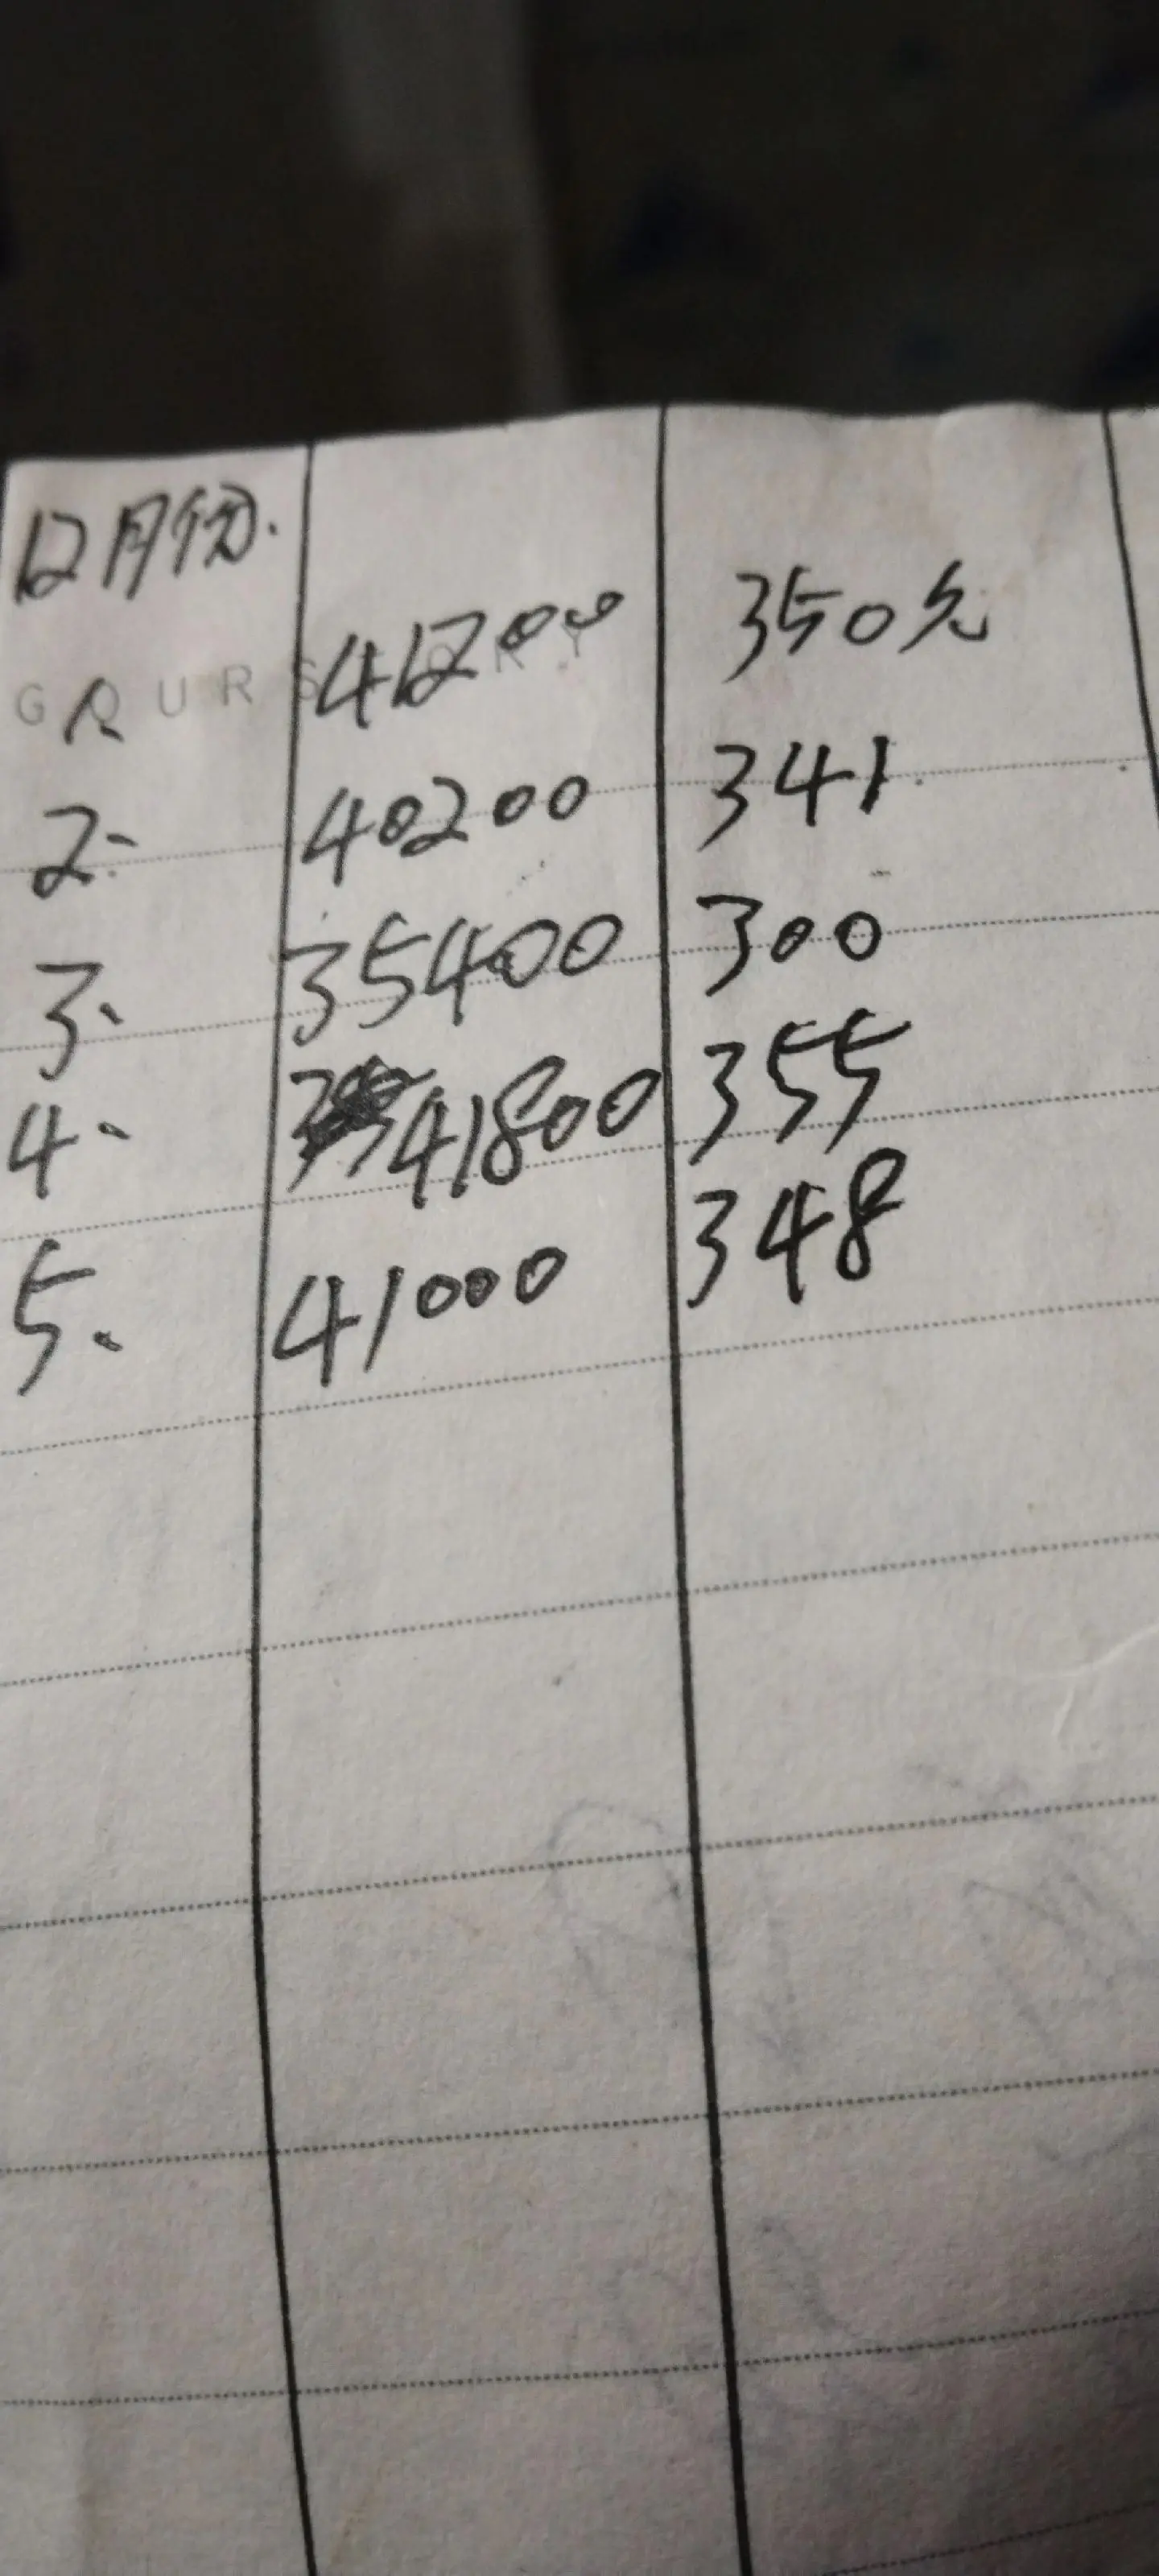 12月份.
1、 41200 350元
2、 40200 341.
3、 35400 300
4、 41800 355
5、 41000 348